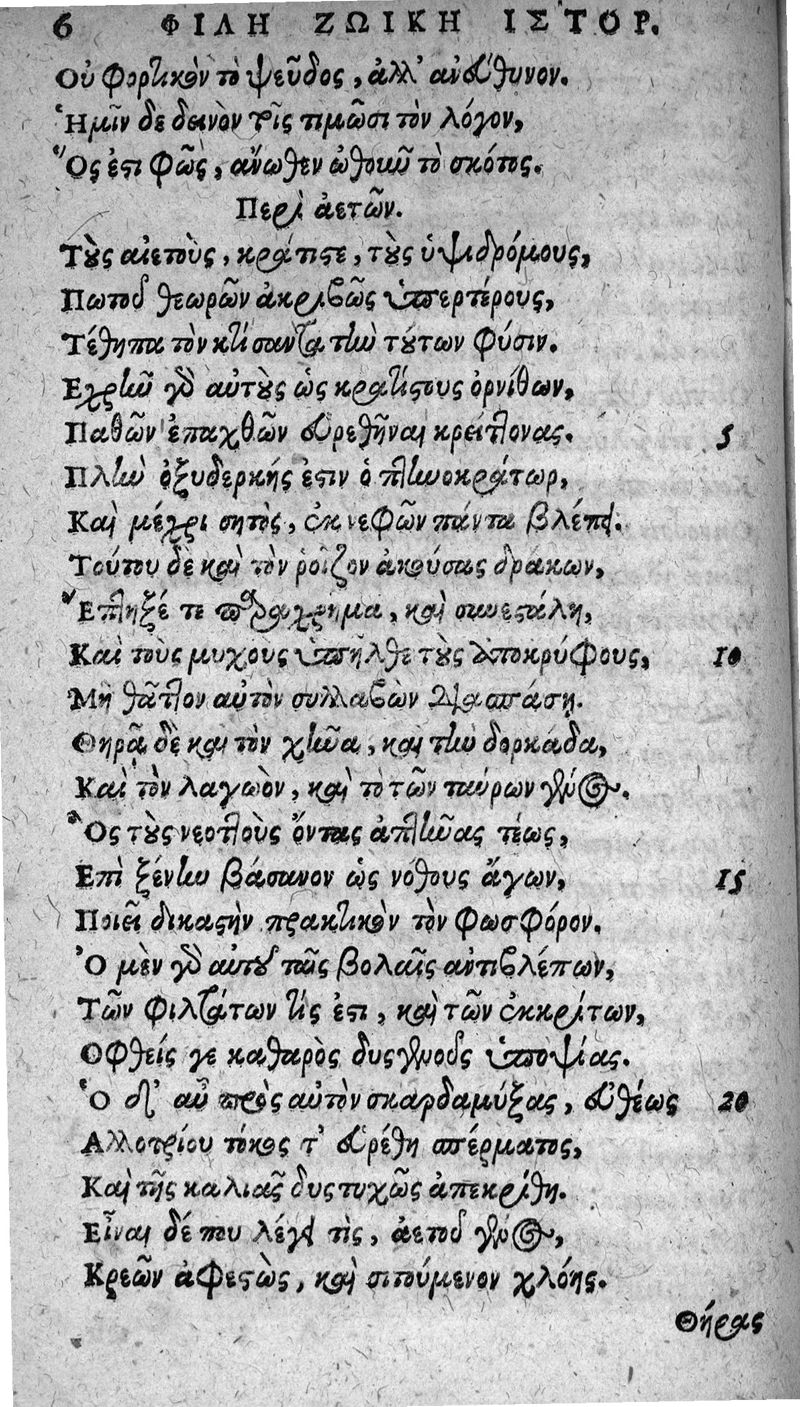 6 ΦΙΛΗ ΖΩΙΚΗ ΙΣΤΟΡ.
Οὐ φορτικὸν τὸ ψεῦδος, ἀλλ' ἀνεύθυνον.
Ἡμῖν δὲ δεινὸν τοῖς τιμῶσι τὸν λόγον,
Ὅς ἐστι φῶς, ἄνωθεν ὠθοῦν τὸ σκότος.
Περὶ ἀετῶν.
Τοὺς αἰετοὺς, κράτιστε, τοὺς ὑψιδρόμους,
Πωτοῦ θεωρῶν ἀκριβῶς ὑπερτέρους,
Τέθηπα τὸν κτίσαντα τὴν τούτων φύσιν.
Εχρῆν γὸ αὐτοὺς ὡς κρατίστους ὀρνίθων,
Παθῶν ἐπαχθῶν εὑρεθῆναι κρείττονας. 5
Πλὴν ὀξυδερκής ἐστιν ὁ πτηνοκράτωρ,
Καὶ μέχρι σητὸς, ἐκ νεφῶν πάντα βλέπει.
Τούτου δὲ καὶ τὸν ῥοῖζον ἀκούσας δράκων,
Ἔπτηξέ τε παραχρῆμα, καὶ συνεστάλη,
Καὶ τοὺς μυχοὺς ὑπῆλθε τοὺς ἀποκρύφους, 10
Μὴ θᾶττον αὐτὸν συλλαβὼν διασπάσῃ.
Θηρᾷ δὲ καὶ τὸν χῆνα, καὶ τὴν δορκάδα,
Καὶ τὸν λαγωὸν, καὶ τὸ τῶν ταύρων γένος.
Ὃς τοὺς νεοττοὺς ὄντας ἀπτῆνας τέως,
Επὶ ξένην βάσανον ὡς νόθους ἄγων, 15
Ποιεῖ δικαστὴν πρακτικὸν τὸν φωσφόρον.
Ὁ μὲν γὸ αὐτοῦ ταῖς βολαῖς ἀντιβλέπων,
Τῶν φιλτάτων τίς ἐστι, καὶ τῶν ἐκκρίτων,
Οφθείς γε καθαρὸς δυσγενοῦς ὑποψίας.
Ὁ δ' αὖ πρὸς αὐτὸν σκαρδαμύξας, εὐθέως 20
Αλλοτρίου τόκος τ' εὑρέθη σπέρματος,
Καὶ τῆς καλιᾶς δυστυχῶς ἀπεκρίθη.
Εἶναι δέ που λέγει τὶς, ἀετοῦ γένος,
Κρεῶν ἀφεστὼς, καὶ σιτούμενον χλόης.
Θήρας